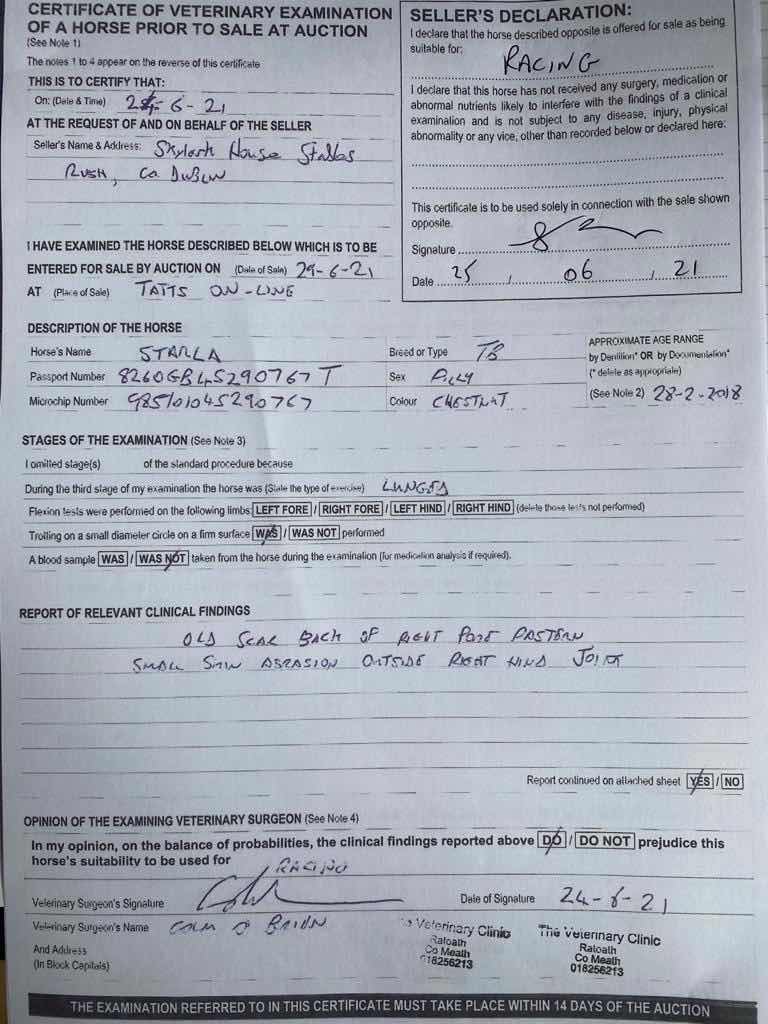 CERTIFICATE OF VETERINARY EXAMINATION
OF A HORSE PRIOR TO SALE AT AUCTION
(See Note 1)
The notes 1 to 4 appear on the reverse of this certificate
THIS IS TO CERTIFY THAT:
On: (Date & Time) 24-6-21
AT THE REQUEST OF AND ON BEHALF OF THE SELLER
Seller's Name & Address: Skylark House Stables
RUSH, Co. DUBLIN
I HAVE EXAMINED THE HORSE DESCRIBED BELOW WHICH IS TO BE
ENTERED FOR SALE BY AUCTION ON (Date of Sale) 29-6-21
AT (Place of Sale) TATTS ON-LINE
SELLER'S DECLARATION:
I declare that the horse described opposite is offered for sale as being
suitable for: RACING
I declare that this horse has not received any surgery, medication or
abnormal nutrients likely to interfere with the findings of a clinical
examination and is not subject to any disease, injury, physical
abnormality or any vice, other than recorded below or declared here:
This certificate is to be used solely in connection with the sale shown
opposite.
Signature
Date 25 / 06 / 21
DESCRIPTION OF THE HORSE
Horse's Name STARLA
Passport Number 8260GB45290767T
Microchip Number 985101045290767
Breed or Type TB
Sex FILLY
Colour CHESTNUT
APPROXIMATE AGE RANGE
by Dentition* OR by Documentation*
(* delete as appropriate)
(See Note 2) 28-2-2018
STAGES OF THE EXAMINATION (See Note 3)
I omitted stage(s) of the standard procedure because
During the third stage of my examination the horse was (State the type of exercise) LUNGED
Flexion tests were performed on the following limbs: LEFT FORE / RIGHT FORE / LEFT HIND / RIGHT HIND (delete those tests not performed)
Trotting on a small diameter circle on a firm surface WAS / WAS NOT performed
A blood sample WAS / WAS NOT taken from the horse during the examination (for medication analysis if required).
REPORT OF RELEVANT CLINICAL FINDINGS
OLD SCAR BACK OF RIGHT FORE PASTERN
SMALL SKIN ABRASION OUTSIDE RIGHT HIND JOINT
Report continued on attached sheet YES / NO
OPINION OF THE EXAMINING VETERINARY SURGEON (See Note 4)
In my opinion, on the balance of probabilities, the clinical findings reported above DO / DO NOT prejudice this
horse's suitability to be used for RACING
Veterinary Surgeon's Signature
Date of Signature 24-6-21
Veterinary Surgeon's Name COLM O BRIEN
And Address
(In Block Capitals)
Veterinary Clinic
Ratoath
Co Meath
018256213
The Veterinary Clinic
Ratoath
Co Meath
018256213
THE EXAMINATION REFERRED TO IN THIS CERTIFICATE MUST TAKE PLACE WITHIN 14 DAYS OF THE AUCTION